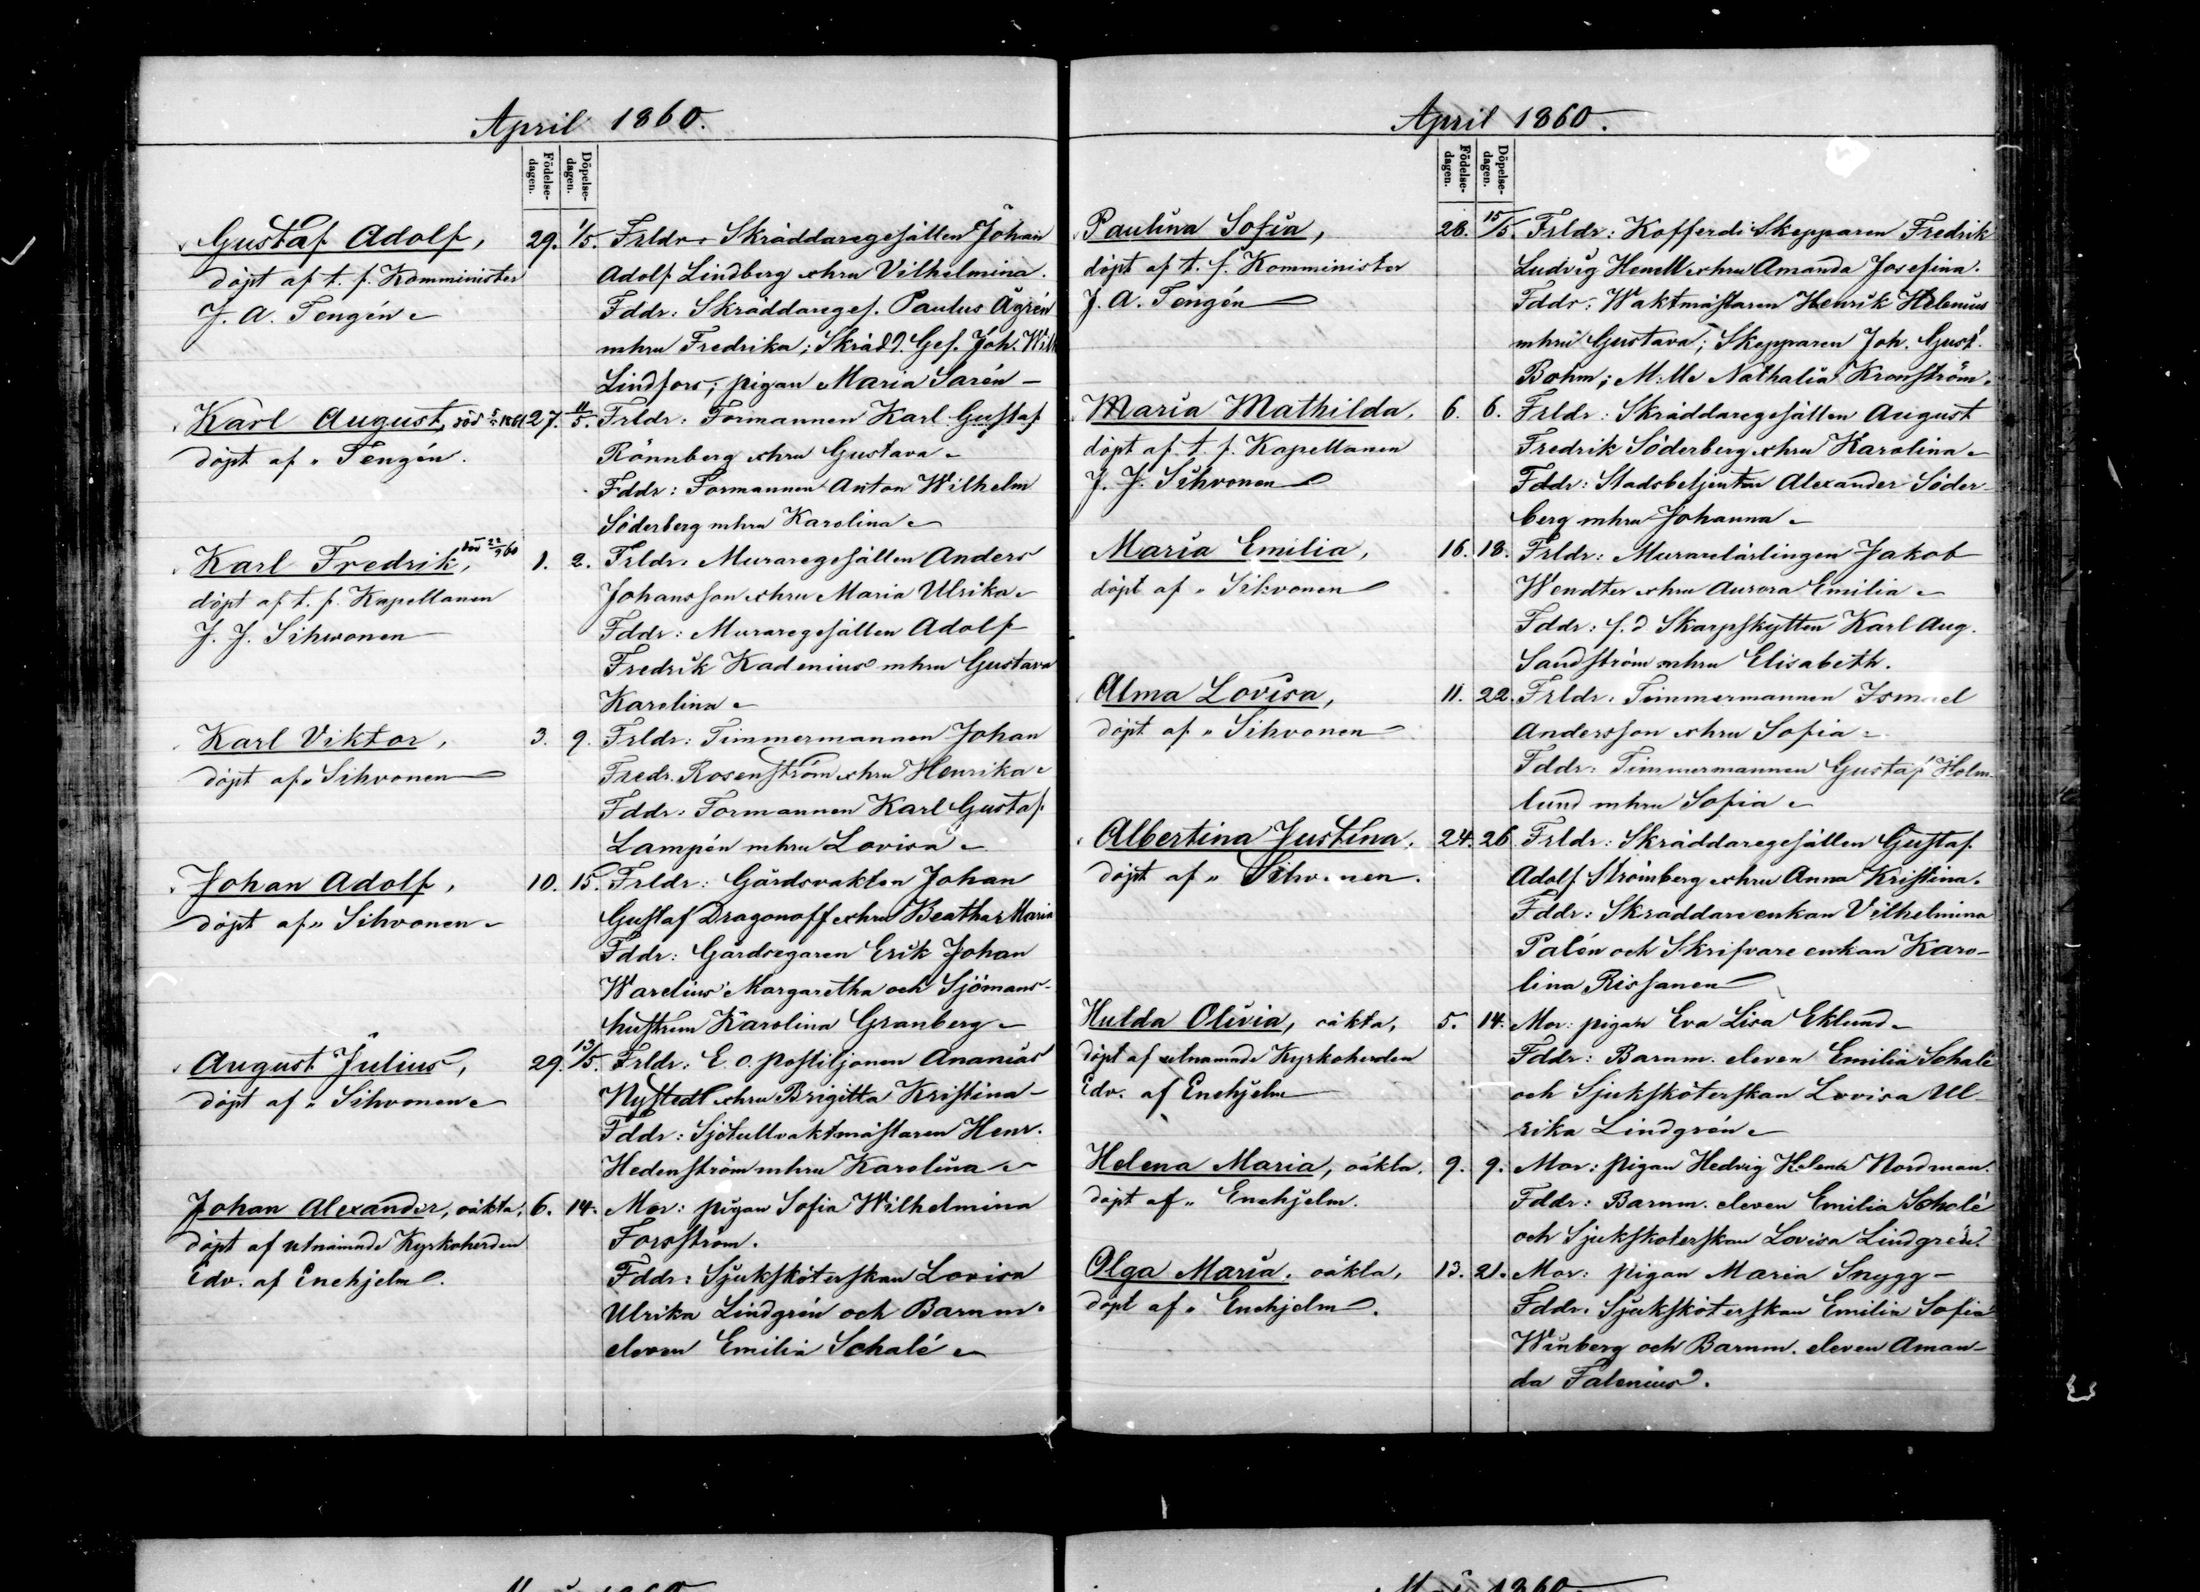 April 1860.
Födelse-dagen.
Döpelse-dagen.
Gustaf Adolf, 29. 1/5. Frldr: Skräddaregesällen Johan
döpt af t. f. Komminister Adolf Lindberg o hru Vilhelmina.
J. A. Tengén Fddr: Skräddareges. Paulus Ågrén
mhru Fredrika; Skrädd. Ges. Joh. Wilh
Lindfors; pigan Maria Sarén
Karl August, död 27. 11/5. Frldr: Formannen Karl Gustaf
döpt af " Tengén. Rönnberg o hru Gustava
Fddr: Formannen Anton Wilhelm
Söderberg mhru Karolina
Karl Fredrik, död 22/9 60 1. 2. Frldr: Muraregesällen Anders
döpt af t. f. Kapellanen Johansson o hru Maria Ulrika
J. J. Sihvonen Fddr: Muraregesällen Adolf
Fredrik Kadenius mhru Gustava
Karolina
Karl Viktor, 3. 9. Frldr: Timmermannen Johan
döpt af " Sihvonen Fredr. Rosenström o hru Henrika
Fddr: Formannen Karl Gustaf
Lampén mhru Lovisa
Johan Adolf, 10. 15. Frldr: Gårdsvakten Johan
döpt af " Sihvonen Gustaf Dragonoff o hru Beatha Maria
Fddr: Gårdsegaren Erik Johan
Warelius Margaretha och Sjömans-
hustrun Karolina Granberg
August Julius, 29. 13/5. Frldr: E. o. postiljonen Ananias
döpt af " Sihvonen Nystedt o hru Brigitta Kristina
Fddr: Sjötullvaktmästaren Henr.
Hedenström mhru Karolina
Johan Alexander, oäkta, 6. 14. Mor: pigan Sofia Wilhelmina
döpt af utnämnde Kyrkoherden Forsström.
Edv. af Enehjelm. Fddr: Sjuksköterskan Lovisa
Ulrika Lindgrén och Barnm.
eleven Emilia Schalé
April 1860.
Födelse-dagen.
Döpelse-dagen.
Paulina Sofia, 28. 15/5. Frldr: Kofferdi Skepparen Fredrik
döpt af t. f. Komminister Ludvig Henell o hru Amanda Josefina.
J. A. Tengén Fddr: Waktmästaren Henrik Helenius
mhru Gustava; Skepparen Joh. Gust.
Bohm; M:lle Nathalia Kronström.
Maria Mathilda. 6. 6. Frldr: Skräddaregesällen August
döpt af t. f. Kapellanen Fredrik Söderberg o hru Karolina
J. J. Sihvonen Fddr: Stadsbetjenten Alexander Söder-
berg mhru Johanna
Maria Emilia, 16. 18. Frldr: Murarelärlingen Jakob
döpt af " Sihvonen Wendter o hru Aurora Emilia
Fddr: f. d. Skarpskytten Karl Aug.
Sandström mhru Elisabeth.
Alma Lovisa, 11. 22. Frldr: Timmermannen Ismael
döpt af " Sihvonen Andersson o hru Sofia
Fddr: Timmermannen Gustaf Holm-
lund mhru Sofia
Albertina Justina. 24. 26. Frldr: Skräddaregesällen Gustaf
döpt af " Sihvonen. Adolf Strömberg o hru Anna Kristina.
Fddr: Skräddareenkan Vilhelmina
Palén och Skrifvareenkan Karo-
lina Rissanen
Hulda Olivia, oäkta, 5. 14. Mor: pigan Eva Lisa Eklund
döpt af utnämnde Kyrkoherden Fddr: Barnm. eleven Emilia Schalé
Edv. af Enehjelm och Sjuksköterskan Lovisa Ul-
rika Lindgrén
Helena Maria, oäkta, 9. 9. Mor: pigan Hedvig Helena Nordman.
döpt af " Enehjelm. Fddr: Barnm. eleven Emilia Schalé
och Sjuksköterskan Lovisa Lindgrén.
Olga Maria, oäkta, 13. 21. Mor: pigan Maria Snygg
döpt af " Enehjelm. Fddr: Sjuksköterskan Emilia Sofia
Winberg och Barnm. eleven Aman-
da Falenius.